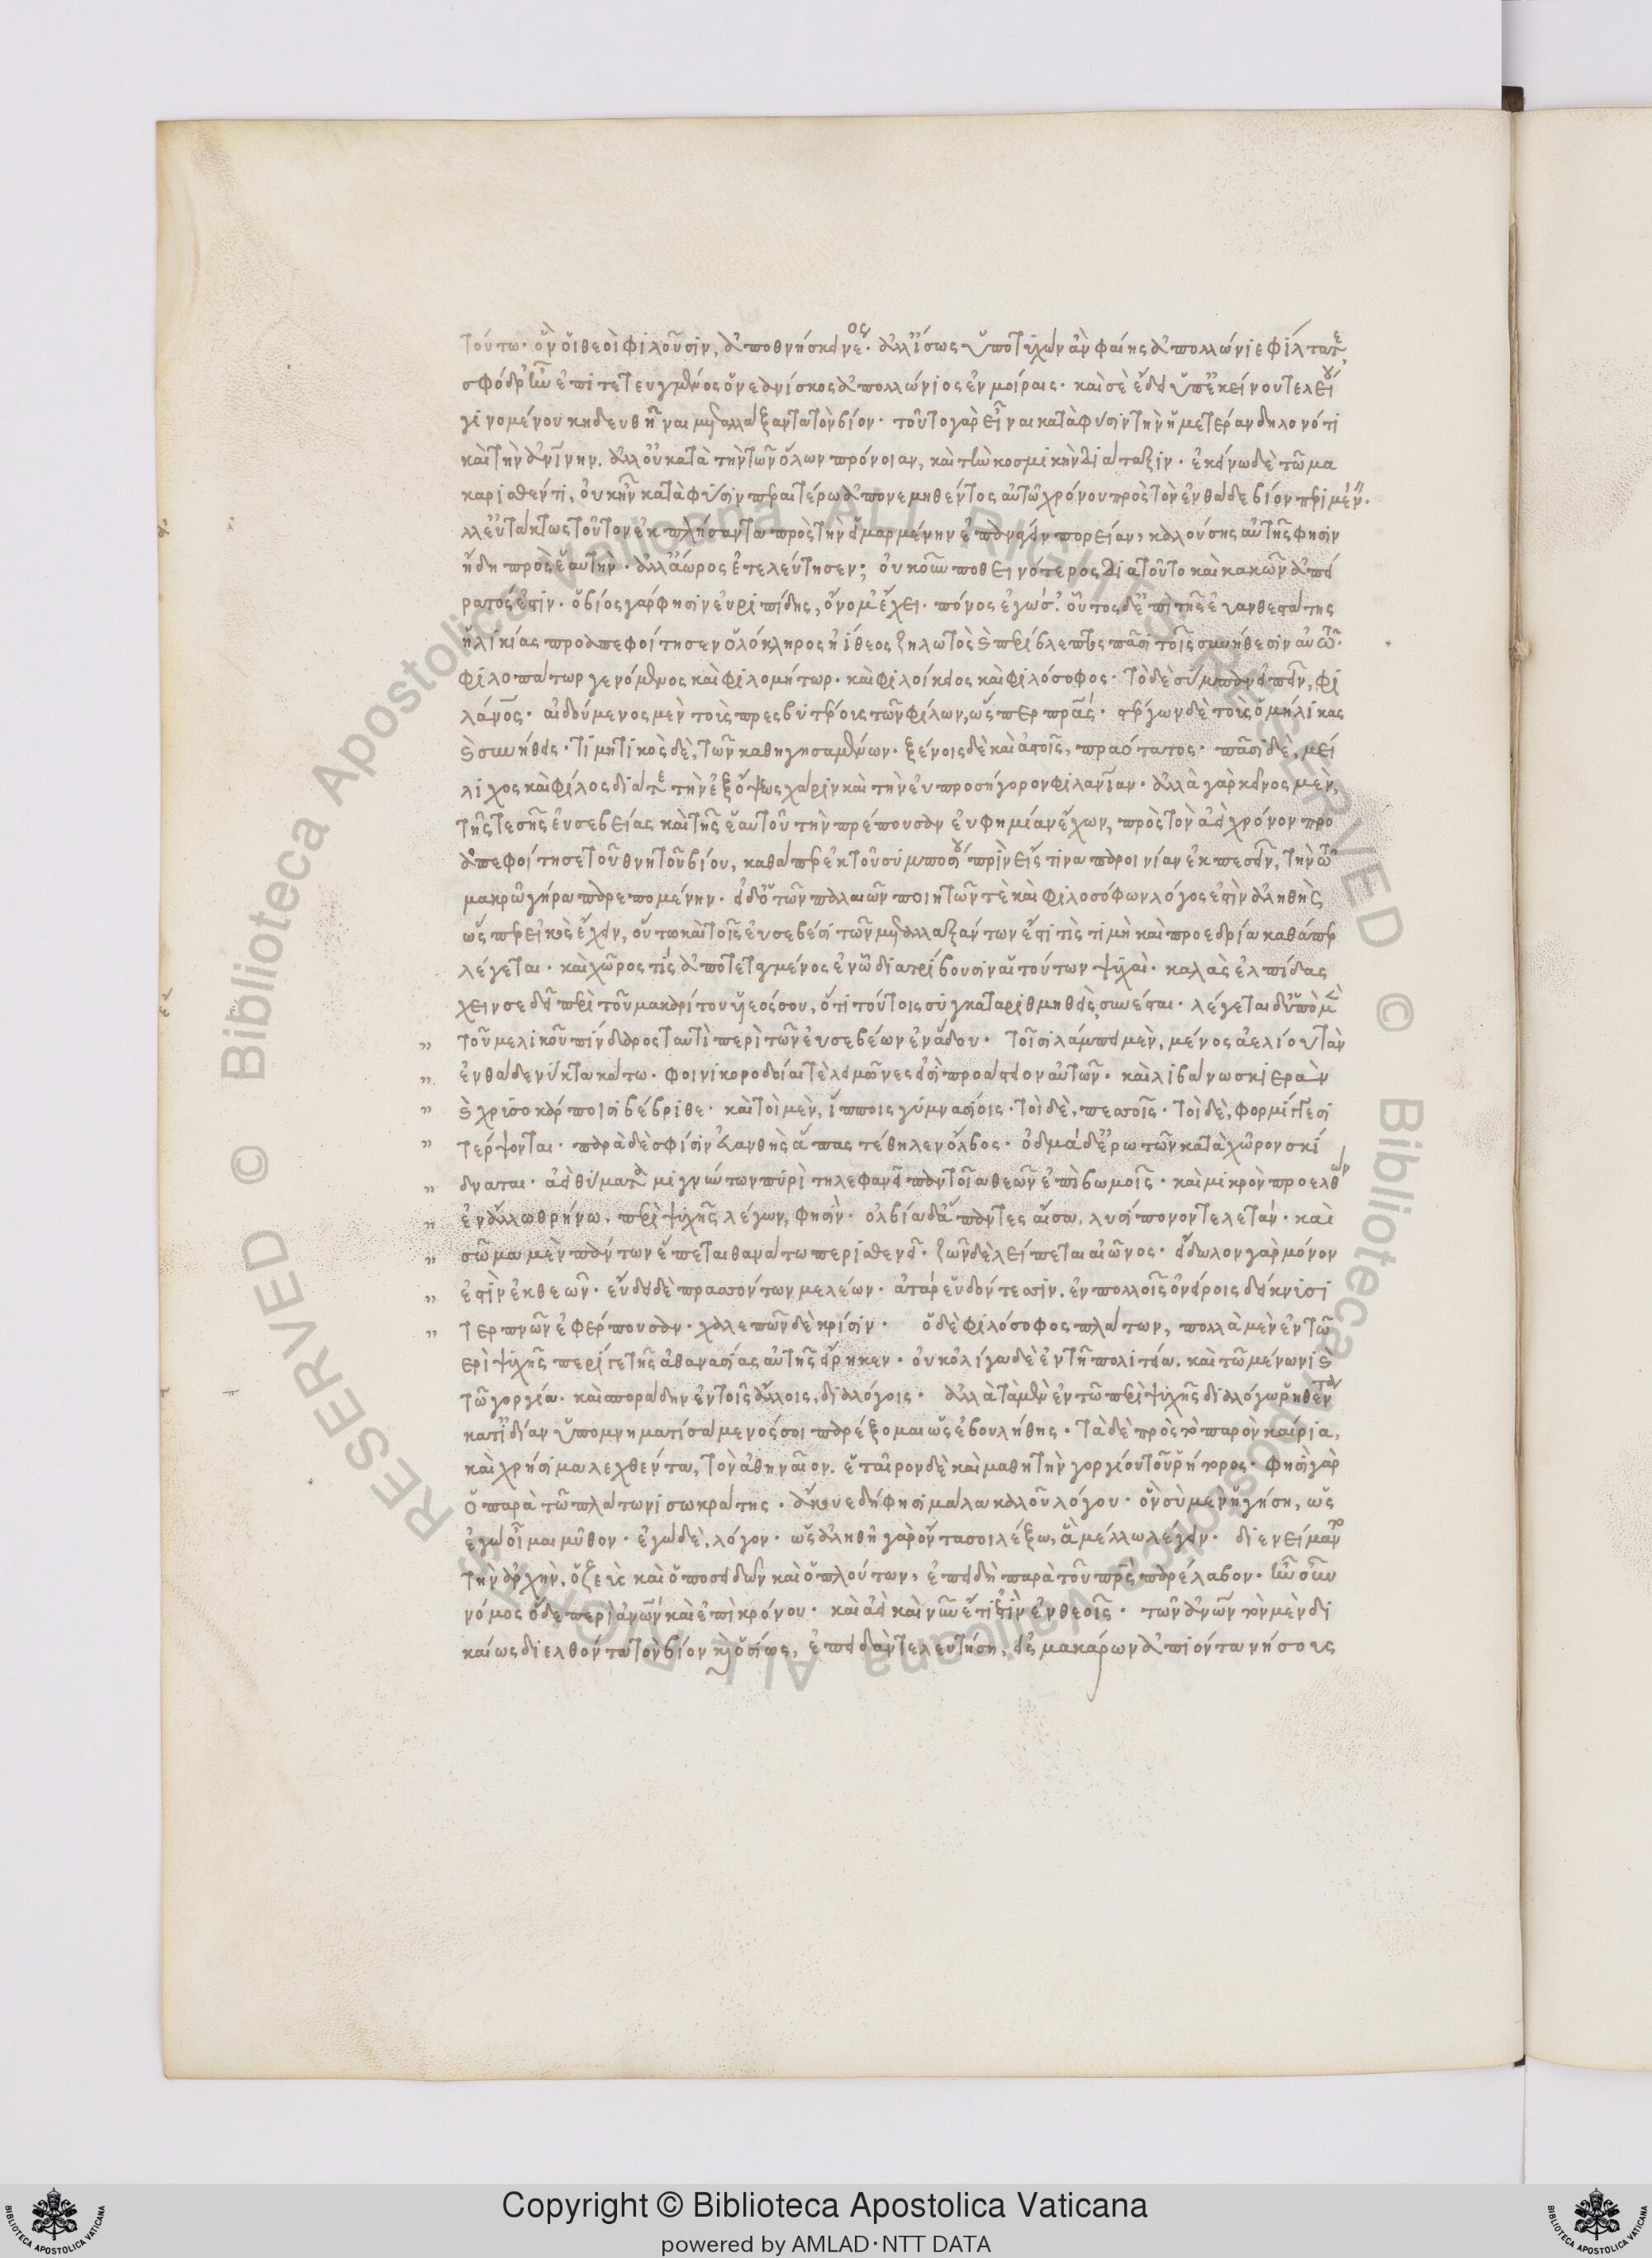 τούτω· ὃν οἱ θεοὶ φιλοῦσιν, ἀποθνήσκει νέος· ἀλλ' ἴσως ὑποτυχὼν ἂν φαίης ἀπολλώνιε φίλτατε
σφόδρ' ὦν ἐπιτετευγμένος ὁ νεανίσκος ἀπολλώνιος ἐν μοίραις· καὶ σὲ ἔδει ὑπ' ἐκείνου τελείου
γινομένου κηδευθῆναι μεταλλάξαντα τὸν βίον· τοῦτο γὰρ εἶναι κατὰ φύσιν τὴν ἡμετέραν δηλονότι
καὶ τὴν ἀνίνην. ἀλλ' οὐ κατὰ τὴν τῶν ὅλων πρόνοιαν, καὶ τὴν κοσμικὴν διάταξιν· ἐκείνω δὲ τῶ μα
καρισθέντι, οὐκ ἦν κατὰ φύσιν περαιτέρω ἀπονεμηθέντος αὐτῶ χρόνου πρὸς τὸν ἐνθάδε βίον περιμένειν·
λλ' εὐτάκτως τοῦτον ἐκπλήσαντα πρὸς τὴν εἱμαρμένην ἐπανάγειν πορείαν, καλούσης αὐτῆς φησὶν
ἤδη πρὸς ἑαυτὴν· ἀλλ' ἄωρος ἐτελεύτησεν; οὐκοῦν ποθεινότερος διὰ τοῦτο καὶ κακῶν ἀπεί
ρατός ἐστιν· ὁ βίος γάρ φησιν εὐριπίδης, ὄνομ' ἔχει· πόνος ἐγὼς· οὗτος δ' ἐπὶ τῆς εὐανθεστάτης
ἡλικίας προαπεφοίτησεν ὁλόκληρος ἠίθεος ζηλωτὸς καὶ περίβλεπτος πᾶσι τοῖς συνήθεσιν αὐτῶ·
φιλοπάτωρ γενόμενος καὶ φιλομήτωρ· καὶ φιλοίκειος καὶ φιλόσοφος· τὸ δὲ σύμπαν εἰπεῖν, φι
λάνος· αἰδούμενος μὲν τοὺς πρεσβυτέρους τῶν φίλων, ὥσπερ πρας· στέργων δὲ τοὺς ὁμήλικας
καὶ συνήθεις· τιμητικὸς δὲ, τῶν καθηγησαμένων· ξένοις δὲ καὶ ἀστοῖς, πραότατος· πᾶσι δὲ, μεί
λιχος καὶ φίλος διά τε τὴν ἐξ ὄψεως χάριν καὶ τὴν εὐπροσήγορον φιλανίαν· ἀλλὰ γὰρ κεῖνος μὲν,
τῆς τε σῆς εὐσεβείας καὶ τῆς ἑαυτοῦ τὴν πρέπουσαν εὐφημίαν ἔχων, πρὸς τὸν ἀεὶ χρόνον προ
απεφοίτησε τοῦ θνητοῦ βίου, καθάπερ ἐκ τοῦ συμποσίου πρὶν εἴς τινα παροινίαν ἐκπεσεῖν, τὴν τῶ
μακρῶ γήρα παρεπομένην· εἰ δ' ὁ τῶν παλαιῶν ποιητῶν τὲ καὶ φιλοσόφων λόγος ἐστὶν ἀληθὴς
ὥσπερ εἰκὸς ἔχειν, οὕτω καὶ τοῖς εὐσεβέσι τῶν μεταλλαξάντων ἔστι τὶς τιμὴ καὶ προεδρία καθάπερ
λέγεται· καὶ χῶρος τίς ἀποτεταγμένος ἐν ὧ διατρίβουσιν αἱ τούτων ψυχαὶ· καλὰς ἐλπίδας
χειν σε δεῖ περὶ τοῦ μακαρίτου υἱέος σου, ὅτι τούτοις συγκαταριθμηθεὶς συνέσται· λέγεται δ' ὑπὸ μὲν
τοῦ μελικοῦ πινδάρος ταυτὶ περὶ τῶν εὐσεβέων ἐν ἅδου· τοῖσι λάμπει μὲν, μένος ἀελίου τὰν
ἐνθάδε νύκτα κάτω· φοινικοροδίαι τε λειμῶνες εἰσὶ προάστειον αὐτῶν· καὶ λιβάνω σκιερὰν
καὶ χρυσοκάρποισι βέβριθε· καὶ τοὶ μὲν, ἵπποις γυμνασίοις· τοὶ δὲ, πεσσοῖς· τοὶ δὲ, φορμίγγεσι
τέρψονται· παρὰ δὲ σφίσιν εὐανθὴς ἅπας τέθηλεν ὄλβος· ὀδμὰ δ' ἐρω τῶν κατὰ χῶρον σκί
δναται· ἀεὶ θύματα μιγνώτων πυρὶ τηλεφανεῖ παντοῖα θεῶν ἐπὶ βωμοῖς· καὶ μικρὸν προελθὼν
ἐν ἄλλω θρήνω, περὶ ψυχῆς λέγων, φησὶν· ὀλβία δ' ἅπαντες αἴσα, λυσίπονον τελετάν· καὶ
σῶμα μὲν πάντων ἕπεται θανάτω περισθενεῖ· ζωὸν δὲ λείπεται αἰῶνος· εἴδωλον γὰρ μόνον
ἐστὶν ἐκ θεῶν· εὕδει δὲ πρασσόντων μελέων· ἀτὰρ εὑδόντεσσιν, ἐν πολλοῖς ὀνείροις δείκνυσι
τερπνῶν ἐφέρπουσαν· χαλεπῶν δὲ κρίσιν· ὁ δὲ φιλόσοφος πλάτων, πολλὰ μὲν ἐν τῶ
ερὶ ψυχῆς περί τε τῆς ἀθανασίας αὐτῆς εἴρηκεν· οὐκ ὀλίγα δὲ ἐν τῆ πολιτεία, καὶ τῶ μένωνι καὶ
τῶ γοργία· καὶ σποράδην ἐν τοῖς ἄλλοις, διαλόγοις· ἀλλὰ τὰ μὲν ἐν τῶ περὶ ψυχῆς διαλόγω ῥηθέντα
κατ' ἰδίαν ὑπομνηματισάμενός σοι παρέξομαι ὡς ἐβουλήθης· τὰ δὲ πρὸς τὸ παρὸν καίρια,
καὶ χρήσιμα λεχθέντα, τὸν ἀθηναῖον, ἑταῖρον δὲ καὶ μαθητὴν γοργίου τοῦ ῥήτορος· φησὶ γὰρ
ὁ παρὰ τῶ πλάτωνι σωκράτης· ἄκουε δή φησι μάλα καλοῦ λόγου· ὃν σὺ μὲν ἡγήση, ὡς
ἐγὼ οἶμαι μῦθον· ἐγὼ δὲ, λόγον· ὡς ἀληθῆ γὰρ ὄντα σοι λέξω, ἃ μέλλω λέγειν· διενείμαντο
τὴν ἀρχὴν, ὁ ζεὺς καὶ ὁ ποσειδῶν καὶ ὁ πλούτων, ἐπειδὴ παρὰ τοῦ πρς παρέλαβον· ἦν οὖν
νόμος ὅδε περὶ ἀνων καὶ ἐπὶ κρόνου· καὶ ἀεὶ καὶ νῦν ἔτι ἐστὶν ἐν θεοῖς· τῶν ἀνων τὸν μὲν δι
καίως διελθόντα τὸν βίον καὶ ὁσίως, ἐπειδὰν τελευτήση, εἰς μακάρων ἀπιόντα νήσους
RESERVED © Biblioteca Apostolica Vaticana ALL RIGHTS RESERVED © Biblioteca Apostolica Vaticana ALL RIGHTS
Copyright © Biblioteca Apostolica Vaticana
powered by AMLAD·NTT DATA
BIBLIOTECA APOSTOLICA VATICANA
BIBLIOTECA APOSTOLICA VATICANA